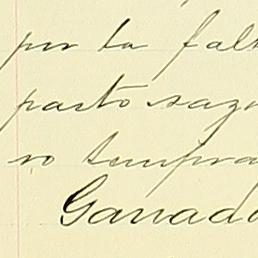 por la fal
pasto sazo
no tempra
Ganado